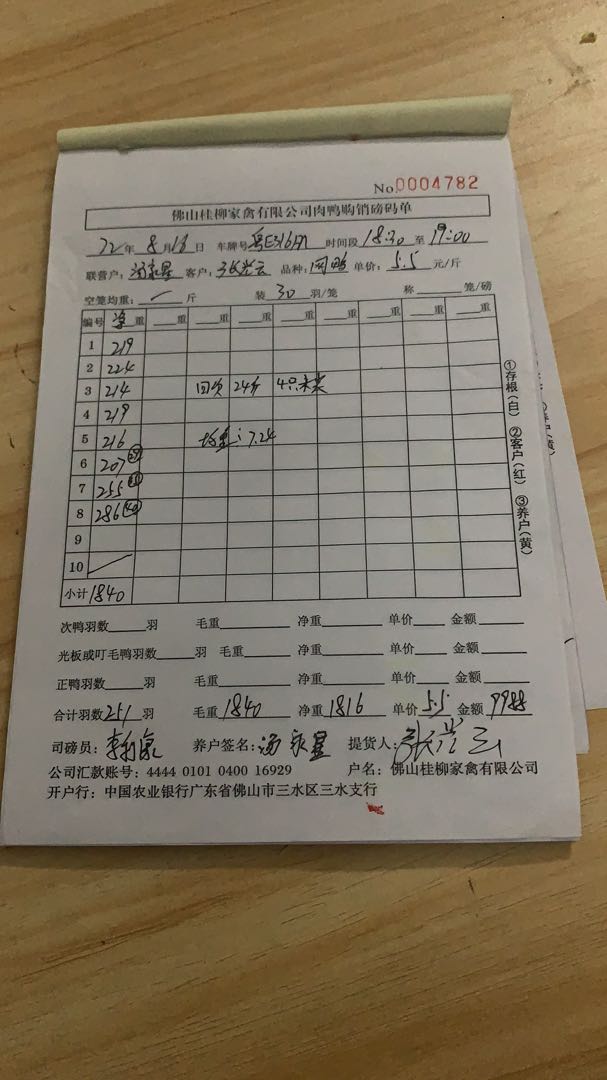 No.0004782
佛山桂柳家禽有限公司肉鸭购销磅码单
22年8月18日 车牌号 时间段18:30至19:00
联营户: 客户: 品种: 单价:5.5元/斤
空笼均重: 斤 装30羽/笼 称 笼/磅
编号 重 重 重 重 重 重 重 重
1 219
2 224
3 214 回 24斤 4只未装
4 219
5 216 均重:7.24
6 207
7 255
8 286
9
10
小计 1840
①存根(白) ②客户(红) ③养户(黄)
次鸭羽数 羽 毛重 净重 单价 金额
光板或叮毛鸭羽数 羽 毛重 净重 单价 金额
正鸭羽数 羽 毛重 净重 单价 金额
合计羽数251羽 毛重1840 净重1816 单价5.5 金额9988
司磅员: 养户签名: 提货人:
公司汇款账号: 4444 0101 0400 16929 户名: 佛山桂柳家禽有限公司
开户行: 中国农业银行广东省佛山市三水区三水支行